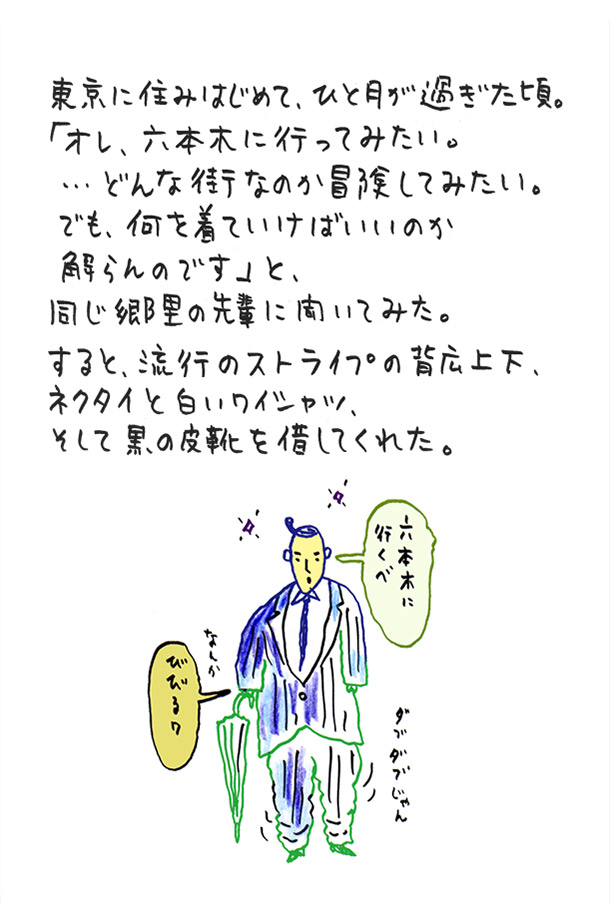 東京に住みはじめて、ひと月が過ぎた頃。
「オレ、六本木に行ってみたい。
…どんな街なのか冒険してみたい。
でも、何を着ていけばいいのか
解らんのです」と、
同じ郷里の先輩に聞いてみた。
すると、流行のストライプの背広上下、
ネクタイと白いワイシャツ、
そして黒の皮靴を借してくれた。
六本木に
行くべ
なんか
びびるワ
ダブダブじゃん